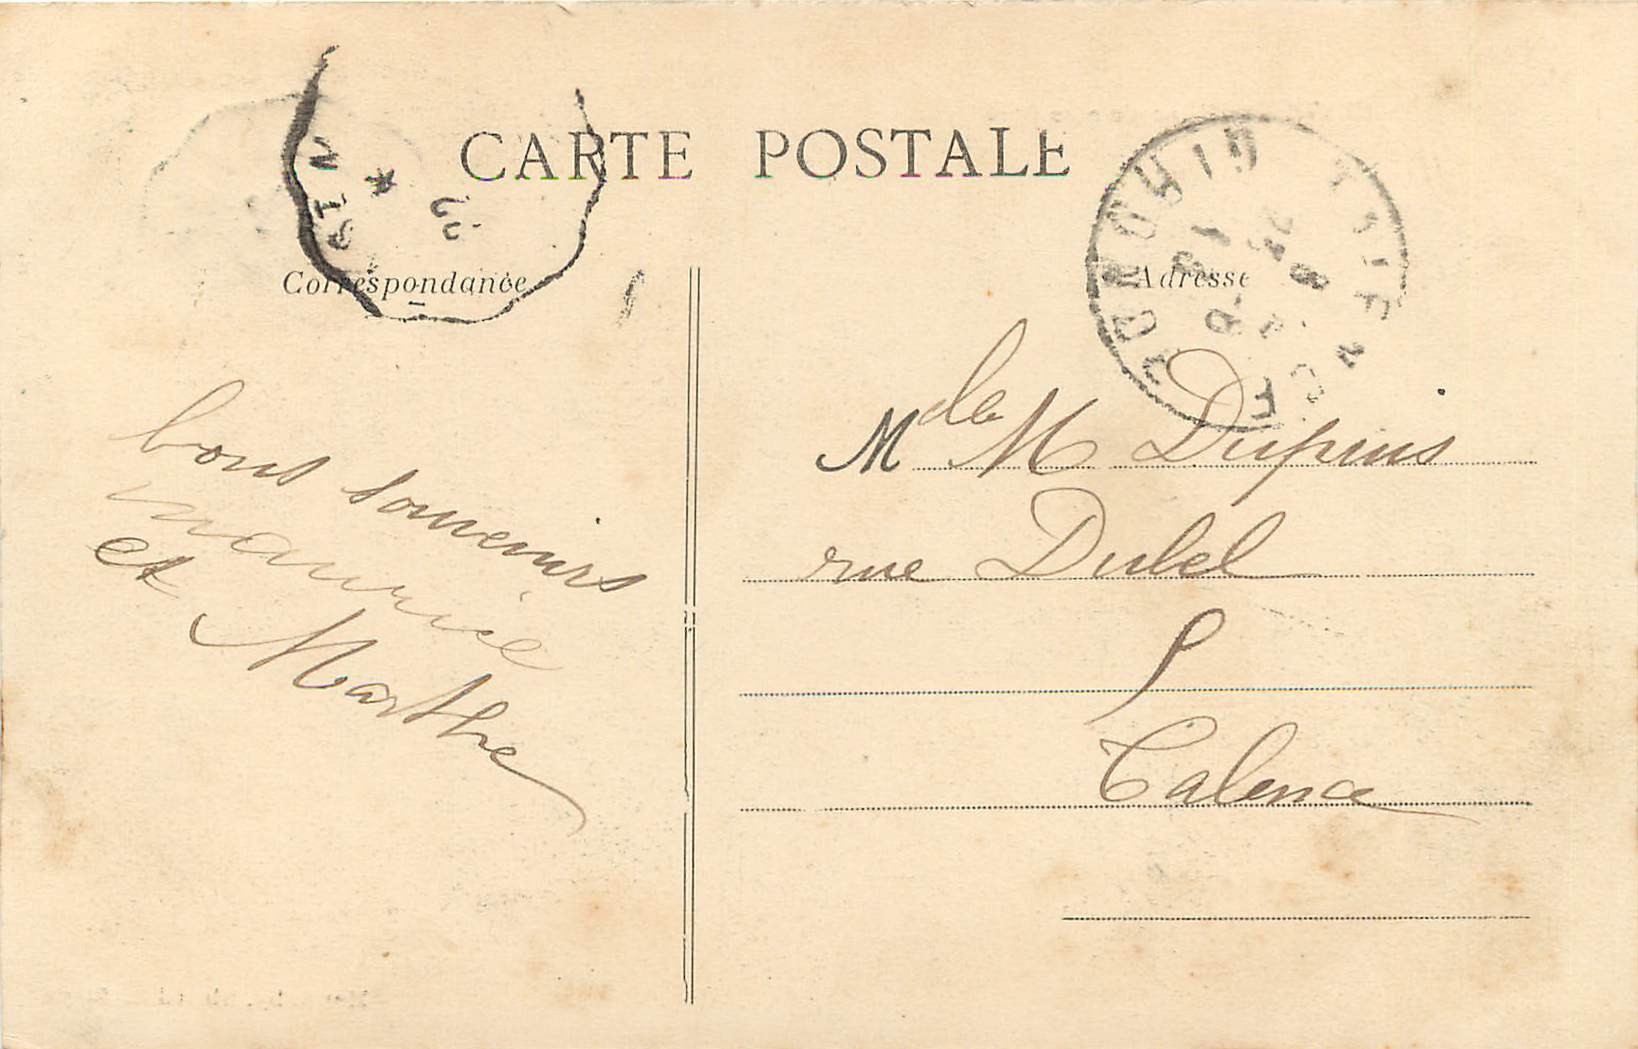 CARTE POSTALE
Correspondance
Adresse
bons souvenirs
maurice
et Marthe
M de M Dupuis
rue Dubel
Talence